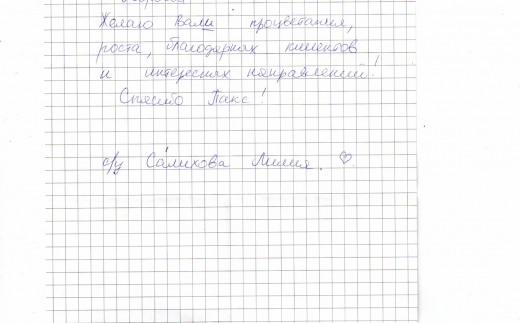 Желаю Вам процветания,
роста, благодарных клиентов
и интересных направлений!
Спасибо Пакс!
с/у Салихова Лилия. ♡